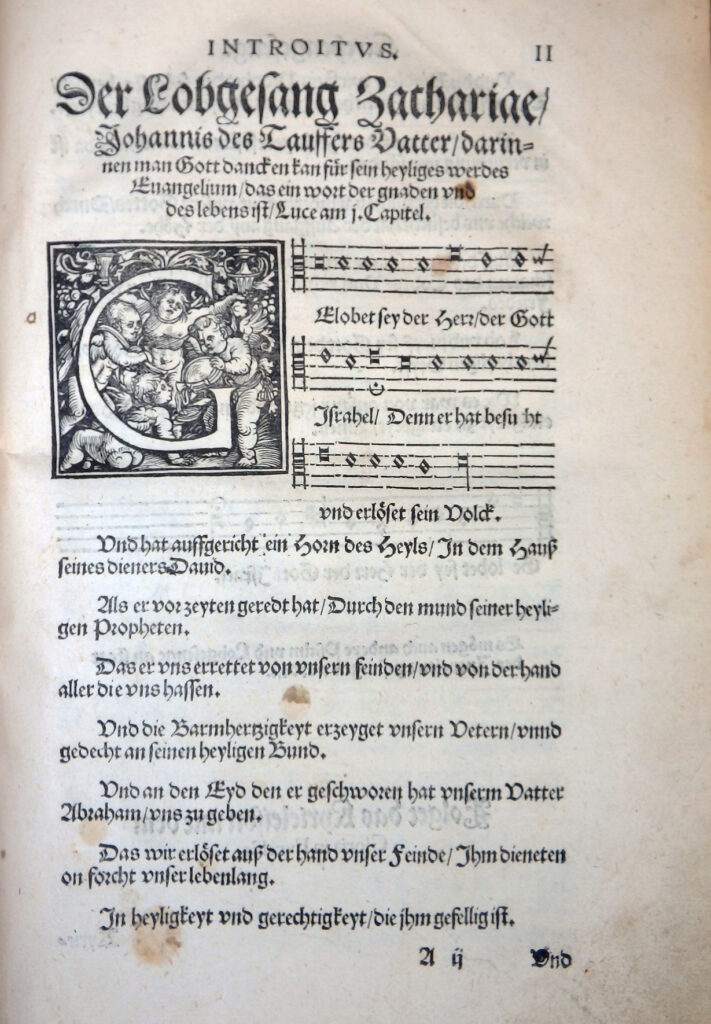 INTROITVS.
II
Der Lobgesang Zachariae/
Johannis des Tauffers Vatter/darin-
nen man Gott dancken kan für sein heyliges werdes
Euangelium/das ein wort der gnaden vnd
des lebens ist/Luce am j. Capitel.
GElobet sey der Herr/der Gott
Israhel/ Denn er hat besucht
vnd erlöset sein Volck.
Vnd hat auffgericht ein Horn des Heyls/In dem Hauß
seines dieners Dauid.
Als er vor zeyten geredt hat/Durch den mund seiner heyli-
gen Propheten.
Das er vns errettet von vnsern feinden/vnd von der hand
aller die vns hassen.
Vnd die Barmhertzigkeyt erzeyget vnsern Vetern/vnnd
gedecht an seinen heyligen Bund.
Vnd an den Eyd den er geschworen hat vnserm Vatter
Abraham/vns zu geben.
Das wir erlöset auß der hand vnser Feinde/Jhm dieneten
on forcht vnser lebenlang.
In heyligkeyt vnd gerechtigkeyt/die jhm gefellig ist.
A ij
Vnd